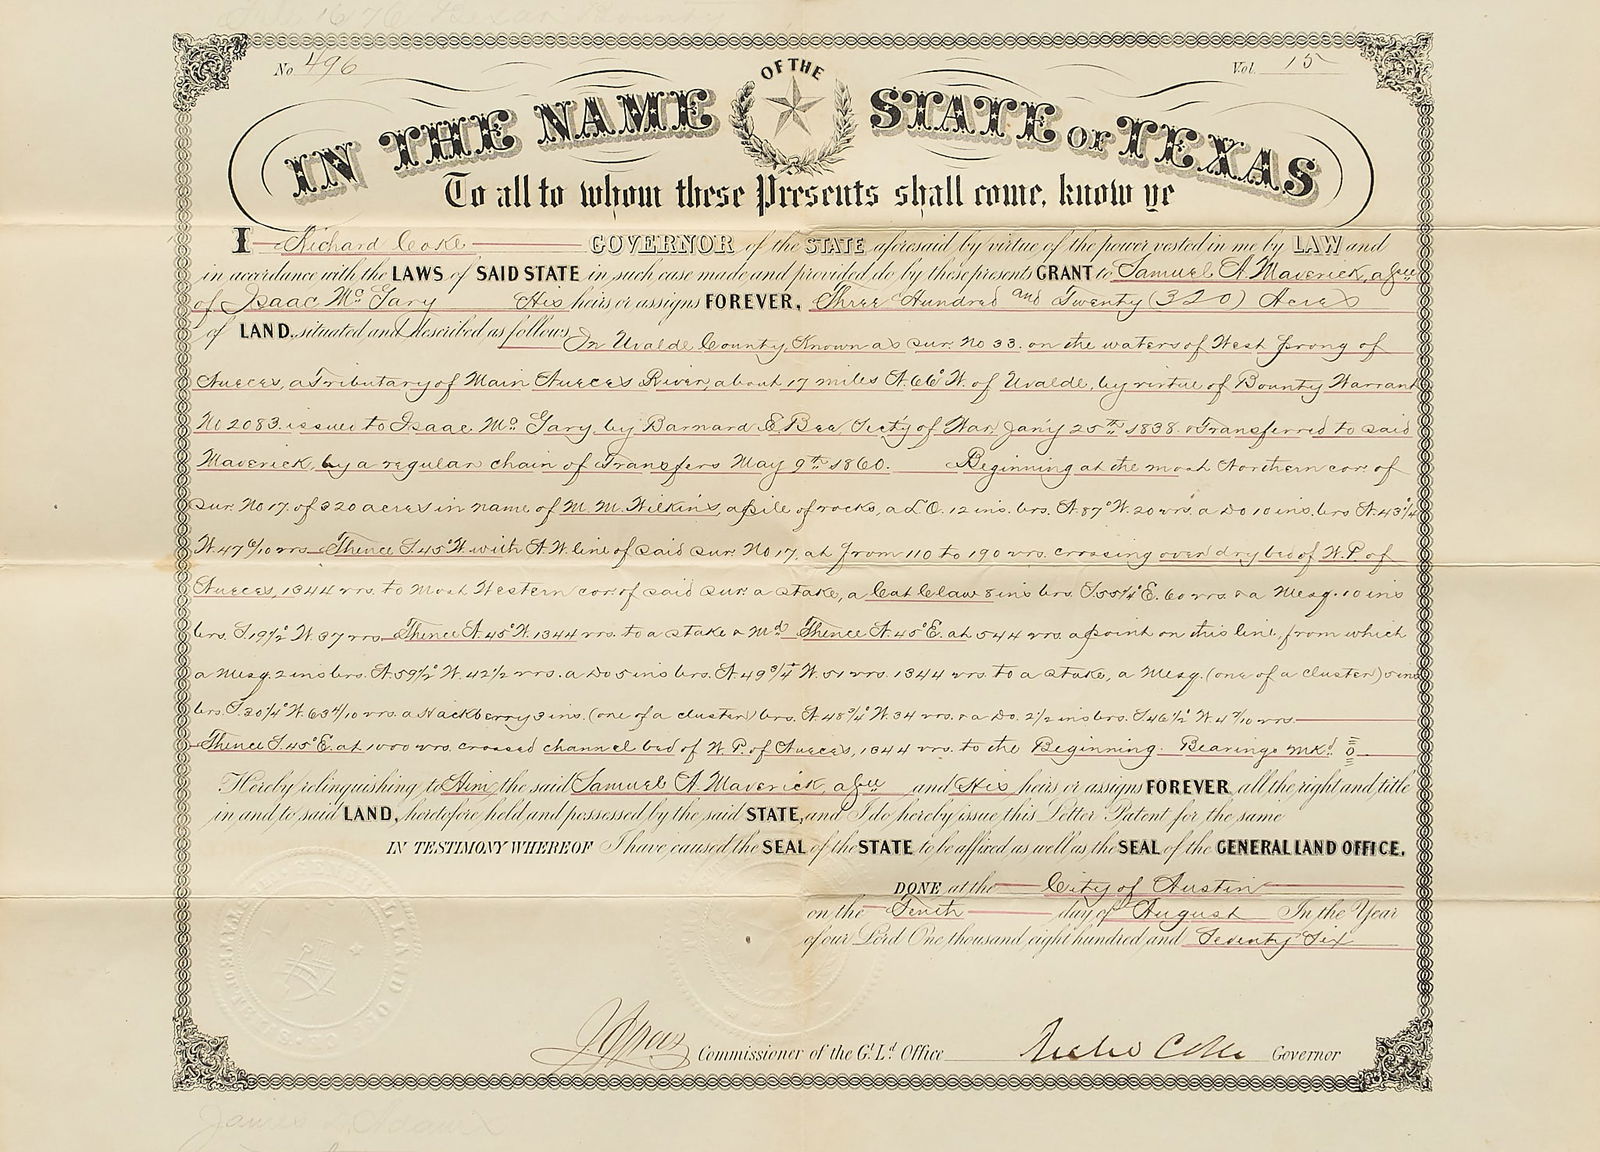 File 1676 Bexar Bounty
No 496
Vol. 15
OF THE
IN THE NAME STATE OF TEXAS
To all to whom these Presents shall come, know ye
I Richard Coke GOVERNOR of the STATE aforesaid by virtue of the power vested in me by LAW and
in accordance with the LAWS of SAID STATE in such case made and provided, do by these presents GRANT to Samuel A. Maverick, assee
of Isaac Mc Gary His heirs or assigns FOREVER, Three Hundred and Twenty (320) Acres
of LAND, situated and described as follows In Uvalde County, Known as Sur. No 33. on the waters of West Prong of
Nueces, a Tributary of Main Nueces River, about 17 miles N. 66° W. of Uvalde, by virtue of Bounty Warrant
No 2083. issued to Isaac Mc Gary, by Barnard E. Bee, Secty of War, Jan'y 25th 1838. & Transferred to said
Maverick, by a regular chain of Transfers May 9th 1860. Beginning at the most Northern cor. of
Sur. No 17. of 320 acres in name of M. M. Wilkins, a pile of rocks, a L.O. 12 ins. brs. N. 87° W. 20 vrs. a Do 10 ins. brs N. 43 1/4°
W. 47 6/10 vrs. Thence S. 45° W. with N.W. line of said Sur. No 17. at from 110 to 190 vrs. crossing over dry bed of W.P. of
Nueces, 1344 vrs. to Most Western cor. of said Sur. a stake, a Cat Claw 8 ins brs. S. 55 1/4° E. 60 vrs. & a Mesq. 10 ins
brs. S. 19 1/2° W. 37 vrs. Thence N. 45° W. 1344 vrs. to a stake & Md. Thence N. 45° E. at 544 vrs. a point on this line, from which
a Mesq. 2 ins brs. N. 59 1/2° W. 42 1/2 vrs. a Do 5 ins brs. N. 49 3/4° W. 51 vrs. 1344 vrs. to a stake, a Mesq. (one of a cluster) 5 ins
brs. S. 30 1/4° W. 63 4/10 vrs. a Hackberry 3 ins. (one of a cluster) brs. N. 48 3/4° W. 34 vrs. & a Do. 2 1/2 ins brs. S. 46 1/2° W. 4 7/10 vrs.
Thence S. 45° E. at 1000 vrs. crossed channel bed of W.P. of Nueces, 1344 vrs. to the Beginning. Bearings mkd.
Hereby relinquishing to Him, the said Samuel A. Maverick, assee and His heirs or assigns FOREVER, all the right and title
in and to said LAND, heretofore held and possessed by the said STATE, and I do hereby issue this Letter Patent for the same
IN TESTIMONY WHEREOF I have caused the SEAL of the STATE to be affixed as well as the SEAL of the GENERAL LAND OFFICE.
DONE at the City of Austin
on the Tenth day of August In the Year
of our Lord One thousand eight hundred and Seventy Six
Commissioner of the Gl. Ld. Office Richd Coke Governor